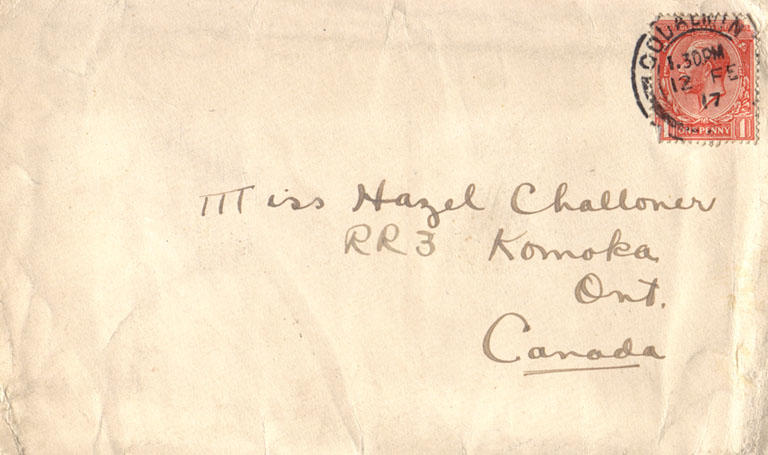 GODALMIN
1.30PM
12 FE
17
1 ONE PENNY 1
Miss Hazel Challoner
RR3 Komoka
Ont.
Canada